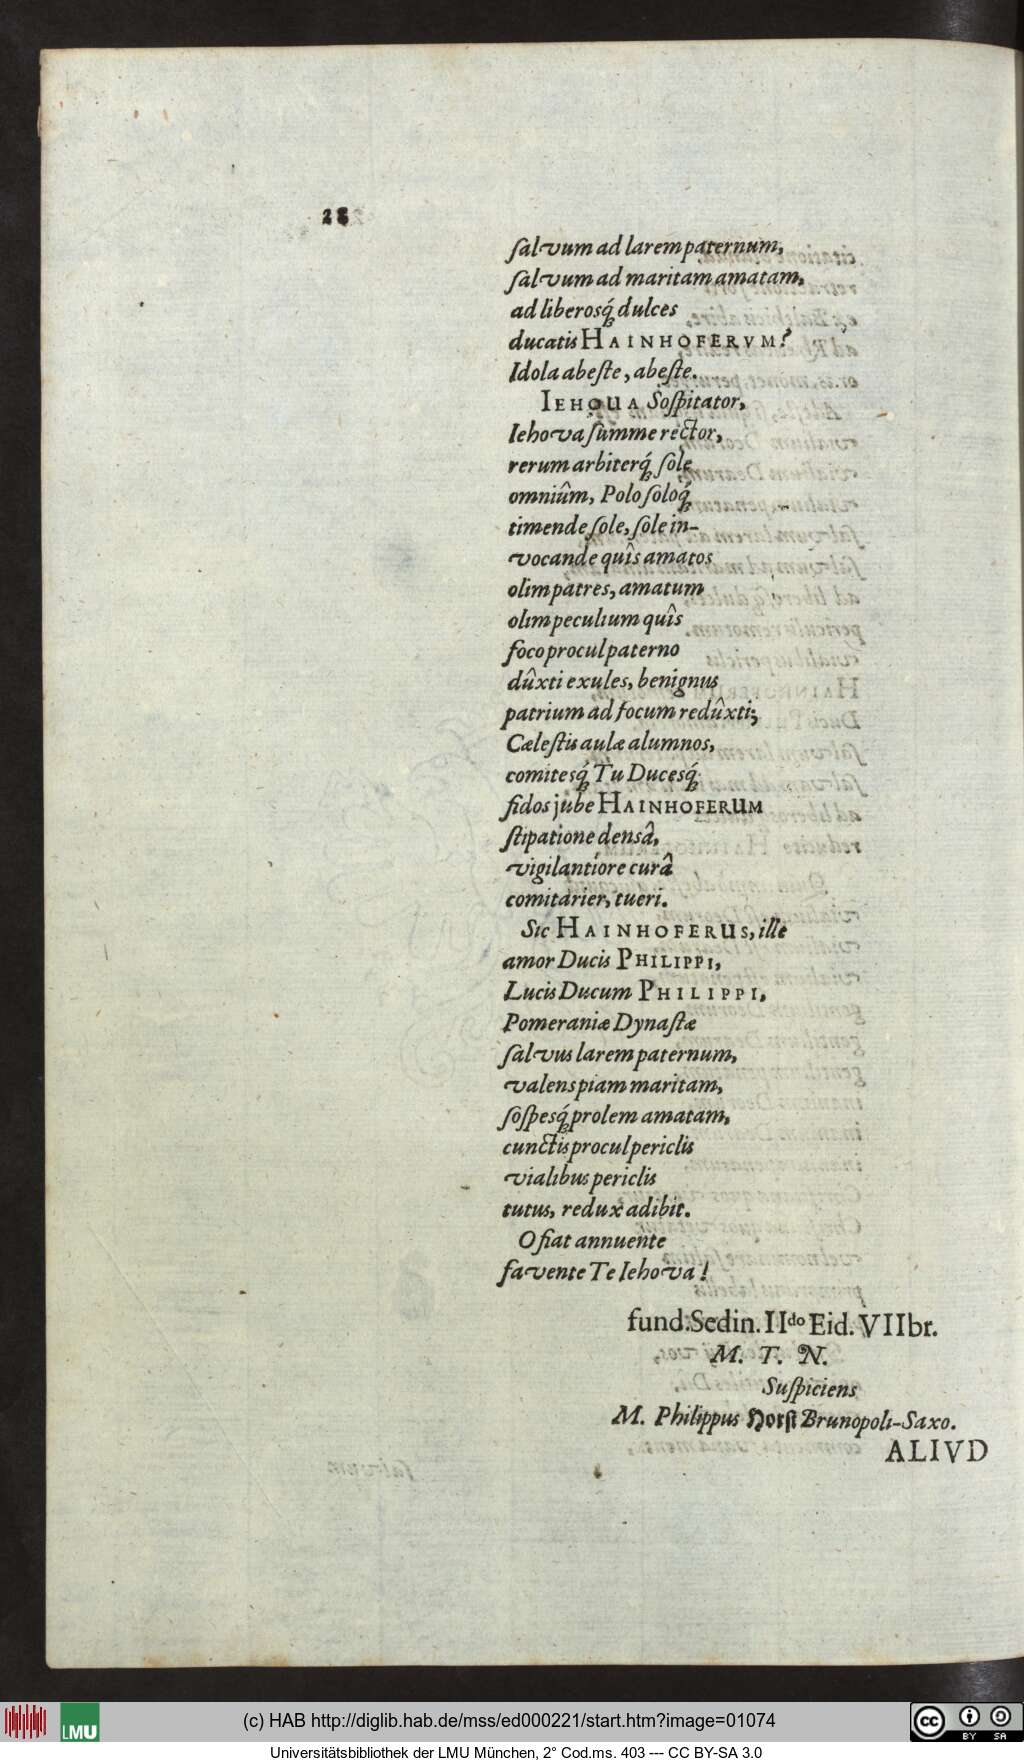 28
ſalvum ad larem paternum,
ſalvum ad maritam amatam,
ad liberosq́; dulces
ducatis HAINHOFERVM?
Idola abeſte, abeſte.
IEHOUA Soſpitator,
Iehova ſumme rector,
rerum arbiterq́; ſole
omniûm, Polo ſoloq́;
timende ſole, ſole in-
vocande quîs amatos
olim patres, amatum
olim peculium quîs
foco procul paterno
dûxti exules, benignus
patrium ad focum redûxti;
Cæleſtis aulæ alumnos,
comitesq́; Tu Ducesq́;
fidos jube HAINHOFERUM
ſtipatione denſâ,
vigilantiore curâ
comitarier, tueri.
Sic HAINHOFERUS, ille
amor Ducis PHILIPPI,
Lucis Ducum PHILIPPI,
Pomeraniæ Dynaſtæ
ſalvus larem paternum,
valens piam maritam,
ſoſpesq́; prolem amatam,
cunctis procul periclis
vialibus periclis
tutus, redux adibit.
O fiat annuente
favente Te Iehova!
fund. Sedin. IIdo Eid. VIIbr.
M. T. N.
Suſpiciens
M. Philippus Horſt Brunopoli-Saxo.
ALIVD
LMU
(c) HAB http://diglib.hab.de/mss/ed000221/start.htm?image=01074
cc BY SA
Universitätsbibliothek der LMU München, 2° Cod.ms. 403 --- CC BY-SA 3.0